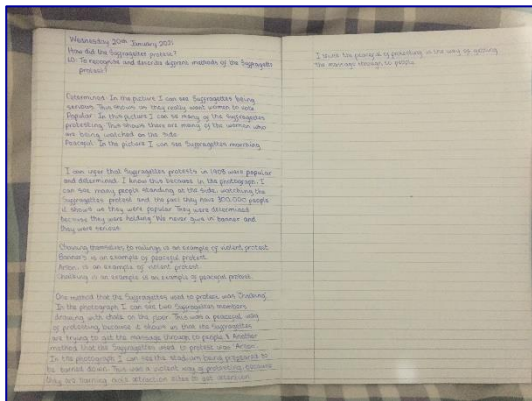 Wednesday 20th January 2021
How did the Suffragettes protest?
LO: To recognise and describe different methods of the Suffragettes
protest?
Determined: In the picture I can see Suffragettes being
serious. This shows us they really want women to vote.
Popular: In this picture I can see many of the Suffragettes
protesting. This shows there are many of the women who
are being watched on the side.
Peaceful: In the picture I can see Suffragettes marching
I can infer that Suffragettes protests in 1908 were popular
and determined. I know this because in the photograph, I
can see many people standing at the side, watching the
Suffragettes protest and the fact they have 300,000 people
it shows us they were popular. They were determined
because they were holding 'We never give in' banner and
they were serious.
Chaining themselves to railings is an example of violent protest.
Banner's is an example of peaceful protest.
Arson is an example of violent protest.
Chalking is an example is an example of peaceful protest.
One method that the Suffragettes used to protest was Chalking.
In the photograph I can see two Suffragettes members
drawing with chalk on the floor. This was a peaceful way
of protesting because it shows us that the Suffragettes
are trying to get the message through to people. Another
method that the Suffragettes used to protest was Arson.
In the photograph I can see the stadium being prepared to
be burned down. This was a violent way of protesting because
they are burning main attraction sites to get attention.
I think the peaceful of protesting is the way of getting
the message through to people.